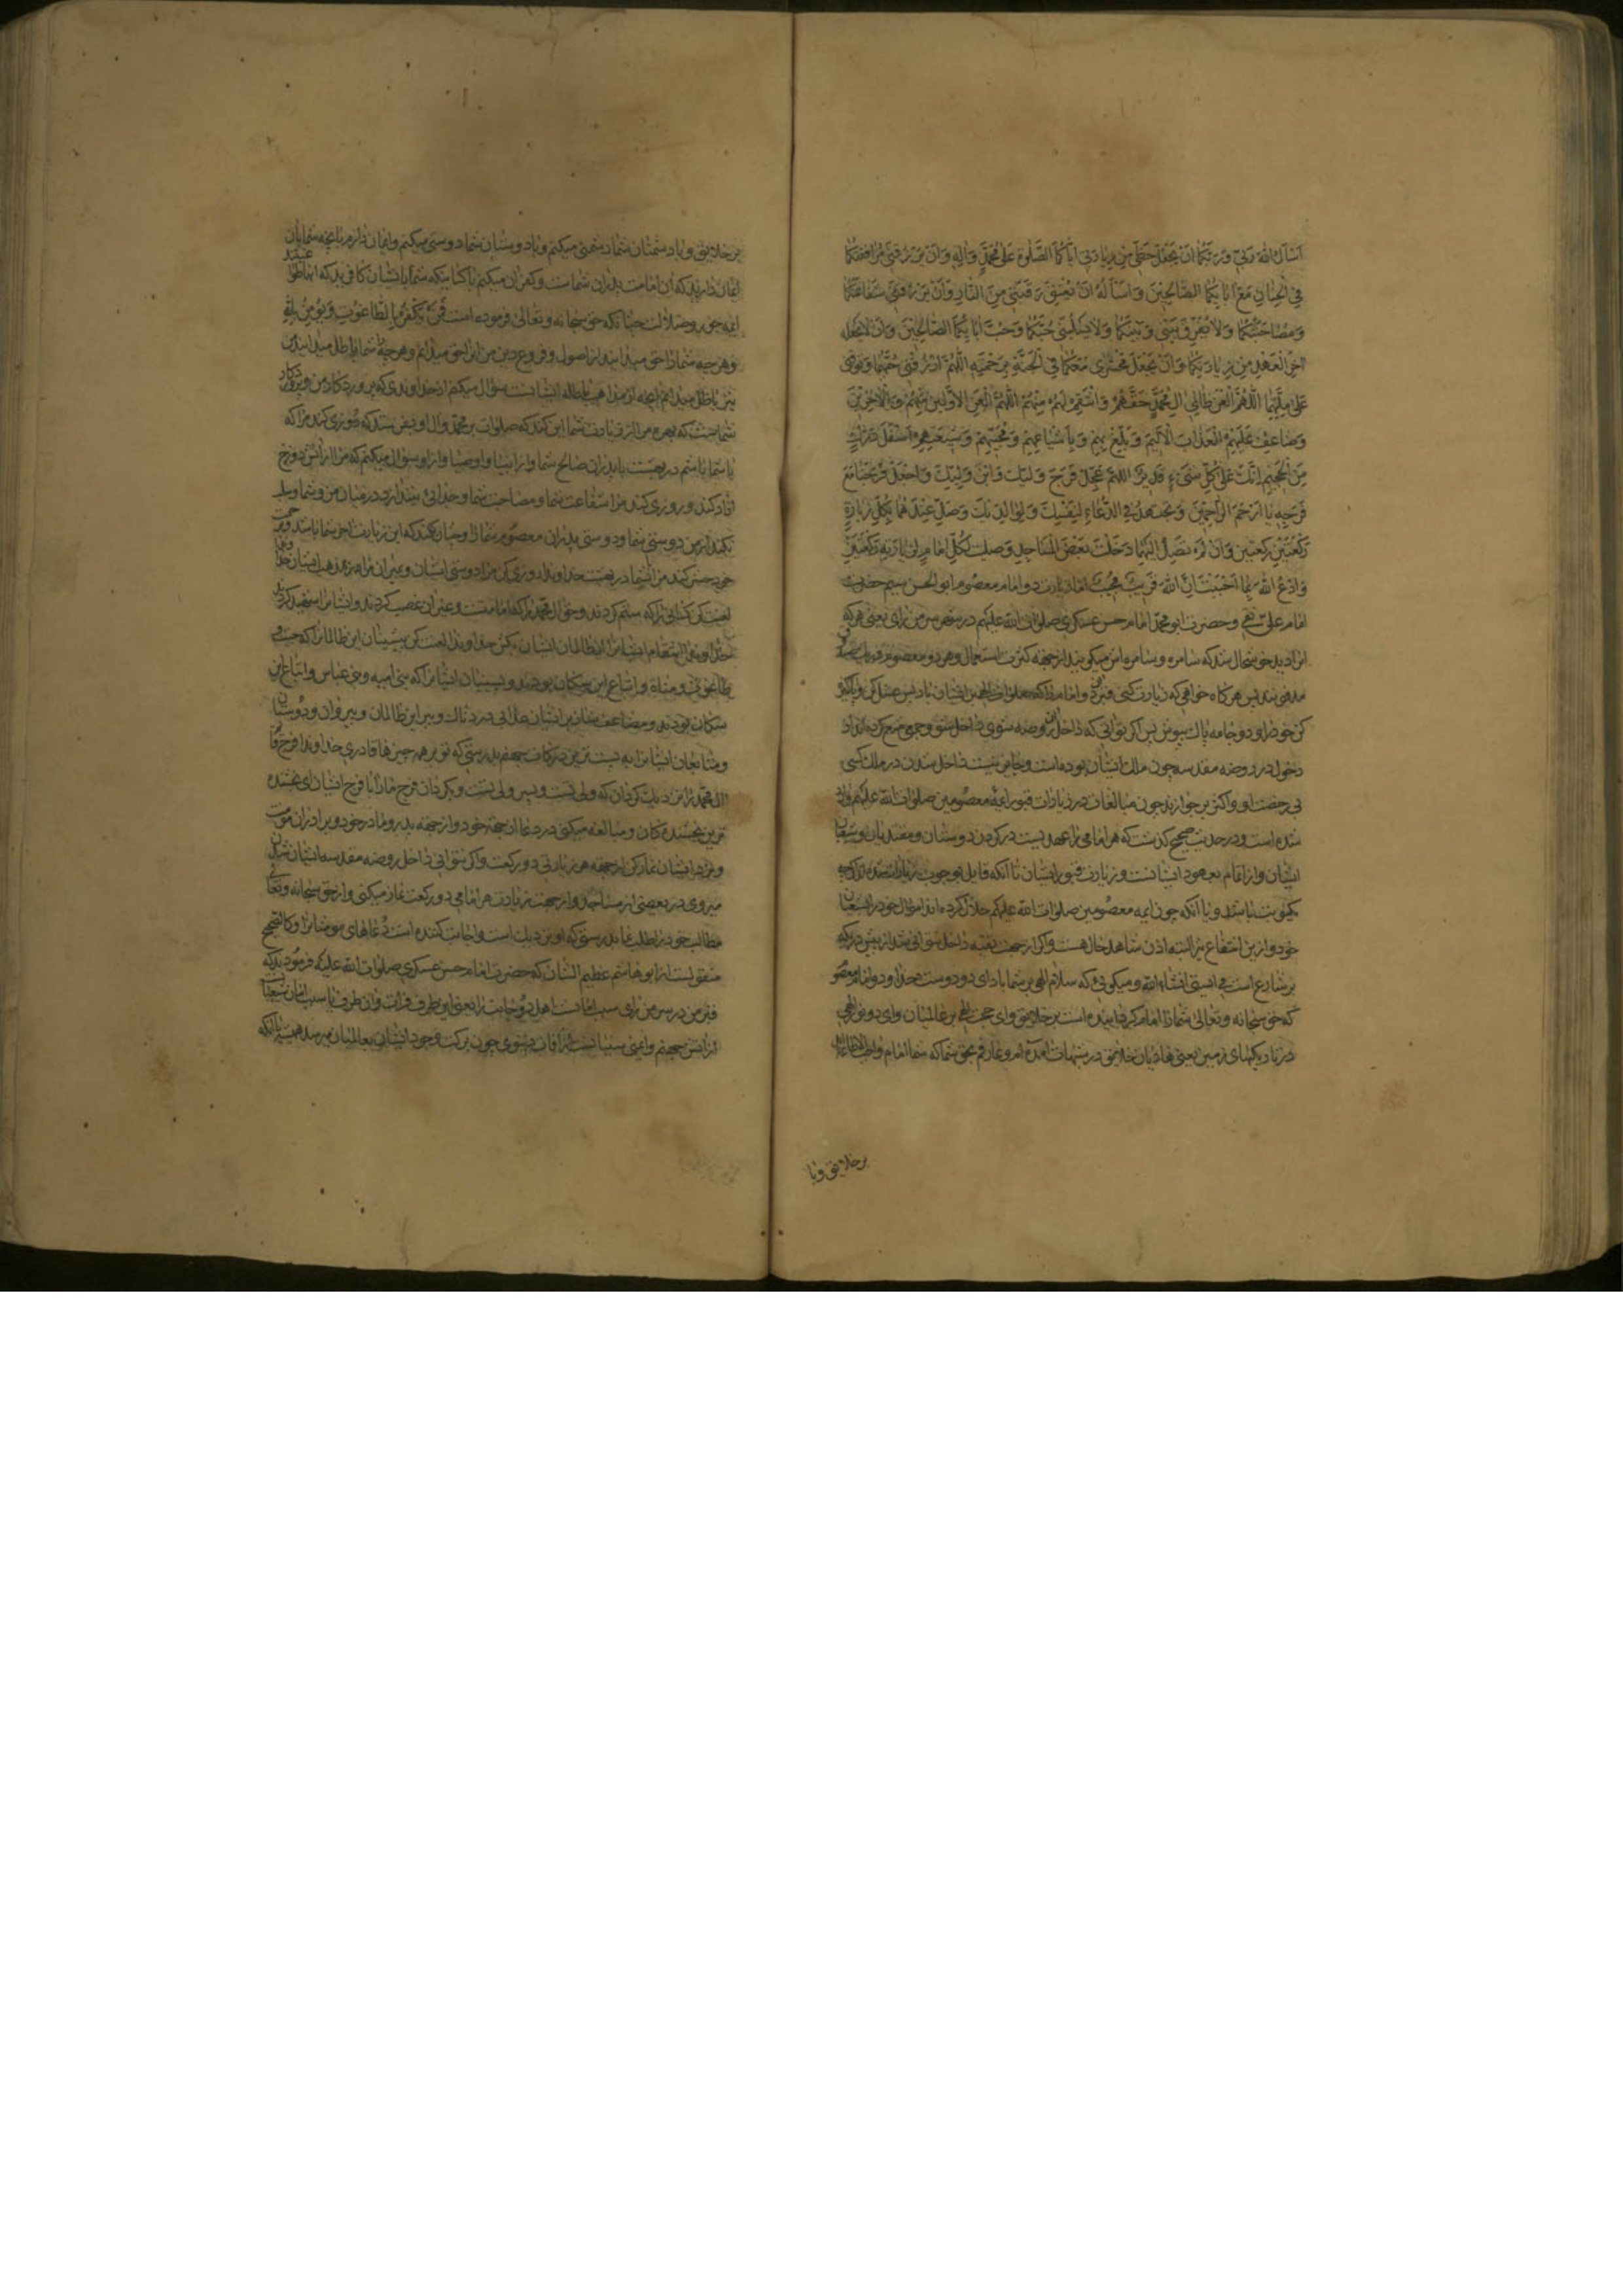 اَسْاَلُ اللهَ رَبّي وَرَبَّكُمٰا اَنْ يَجْعَلَ حَظّي مِنْ زِيٰارَتي اِيّٰاكُمَا الصَّلٰوةَ عَلٰى مُحَمَّدٍ وَاٰلِهِ وَاَنْ يَرْزُقَني مُرٰافَقَتَكُمٰا
فِي الْجِنٰانِ مَعَ اٰبٰائِكُمَا الصّٰالِحينَ وَاَسْاَلُهُ اَنْ يُعْتِقَ رَقَبَتي مِنَ النّٰارِ وَاَنْ يَرْزُقَني شَفٰاعَتَكُمٰا
وَمُصٰاحَبَتَكُمٰا وَلاٰ يُفَرِّقَ بَيْني وَبَيْنَكُمٰا وَلاٰ يَسْلُبَني حُبَّكُمٰا وَحُبَّ اٰبٰائِكُمَا الصّٰالِحينَ وَاَنْ لاٰ يَجْعَلَهُ
اٰخِرَ الْعَهْدِ مِنْ زِيٰارَتِكُمٰا وَاَنْ يَجْعَلَ مَحْشَري مَعَكُمٰا فِي الْجَنَّةِ بِرَحْمَتِهِ اَللّٰهُمَّ ارْزُقْني حُبَّهُمٰا وَتَوَفَّني
عَلٰى مِلَّتِهِمٰا اَللّٰهُمَّ الْعَنْ ظٰالِمي اٰلِ مُحَمَّدٍ حَقَّهُمْ وَانْتَقِمْ مِنْهُمْ اَللّٰهُمَّ الْعَنِ الْاَوَّلينَ مِنْهُمْ وَالْاٰخِرينَ
وَضٰاعِفْ عَلَيْهِمُ الْعَذٰابَ الْاَليمَ وَبَلِّغْ بِهِمْ وَبِاَشْيٰاعِهِمْ وَمُحِبّيهِمْ وَشيعَتِهِمْ اَسْفَلَ دَرَكٍ
مِنَ الْجَحيمِ اِنَّكَ عَلٰى كُلِّ شَيْءٍ قَديرٌ اَللّٰهُمَّ عَجِّلْ فَرَجَ وَلِيِّكَ وَابْنِ وَلِيِّكَ وَاجْعَلْ فَرَجَنٰا مَعَ
فَرَجِهِ يٰا اَرْحَمَ الرّٰاحِمينَ وَتَجْتَهِدُ فِي الدُّعٰاءِ لِنَفْسِكَ وَلِوٰالِدَيْكَ وَصَلِّ عِنْدَهُمٰا لِكُلِّ زِيٰارَةٍ
رَكْعَتَيْنِ رَكْعَتَيْنِ وَاِنْ لَمْ تَصِلْ اِلَيْهِمٰا دَخَلْتَ بَعْضَ الْمَسٰاجِدِ وَصَلَّيْتَ لِكُلِّ اِمٰامٍ لِزِيٰارَتِهِ رَكْعَتَيْنِ
وَادْعُ اللهَ بِمٰا اَحْبَبْتَ اِنَّ اللهَ قَريبٌ مُجيبٌ اما زيارت دو امام معصوم ابو الحسن سيم حضرت
امام علي نقي و حضرت ابو محمد امام حسن عسكرى صلوات الله عليهم در سر من راى يعنى هر كه
انرا ديد خوشحال شد كه سامره و سامره اش ميگويند از جهة كثرت استعمال و هر دو معصوم
مدفونند پس هر گاه خواهى كه زيارت كنى قبر دو امام را كه صلوات الهى بر ايشان باد پس غسل كن و پاكيزه
كن خود را و دو جامه پاك بپوش پس اگر توانى كه داخل روضه شوى داخل شو و جمعى منع كرده اند از
دخول در روضه مقدسه چون ملك ايشان بوده است و جايز نيست داخل شدن در ملك كسى
بى رخصت او و اكثر بر جوازند چون مبالغات در زيارات قبور ائمه معصومين صلوات الله عليهم وارد
شده است و در حديث صحيح گذشت كه هر امامى را عهديست در گردن دوستان و معتقدان و شيعيان
ايشان و از اتمام بعهود ايشانست زيارت قبور ايشان تا آنكه قايل بوجوب زيارات شده اند اگر چه
يكنوبت باشد و با آنكه چون ائمه معصومين صلوات الله عليهم حلال كرده اند اموال خود را بشيعيان
خود و ازين انتفاع نيز البته اذن شاهد حال هست و اگر از جهت تقيه داخل نتوانى شد از پيش دريكه
بر شارع است مى ايستى انشاء الله و ميگوئى كه سلام الهى بر شما باد اى دو دوست خدا و دو امام معصوم
كه حق سبحانه و تعالى شما را امام گردانيده است بر خلايق و اى حجت الهى بر عالميان و اى دو نور الهى
در تاريكيهاى زمين يعنى هاديان خلايق در شبهات آمده ام و عارفم بحق شما كه شما امام واجب الاطاعه ايد
بر خلايق و با
بر خلايق و با دشمنان شما دشمنى ميكنم و با دوستان شما دوستى ميكنم و ايمان دارم بانچه شما بان
ايمان داريد كه آن امامت پدران شماست و كفران ميكنم با كسانيكه شما بايشان كافريد كه آنها
ائمه جور و ضلالت چنانكه حق سبحانه و تعالى فرموده است فَمَنْ يَكْفُرْ بِالطّٰاغُوتِ وَيُؤْمِنْ بِاللهِ
و هر چه شما را حق ميدانيد از اصول و فروع دين من آنرا حق ميدانم و هر چه شما باطل ميدانيد من
نيز باطل ميدانم انچه از مذاهب باطله ايشانست سؤال ميكنم از خداوندى كه پروردگار من و پروردگار
شماست كه بهره من از زيارت شما اين كند كه صلوات بر محمد و ال او بفرستد كه روزى كند مرا كه
با شما باشم در بهشت با پدران صالح شما و از انبيا و اوصيا و از او سؤال ميكنم كه مرا از آتش دوزخ
آزاد كند و روزى كند مرا شفاعت شما و مصاحبت شما و جدائى نيندازد در ميان من و شما و سلب
نكند از من دوستى شما و دوستى پدران معصوم شما را و چنان نكند كه اين زيارت آخر شما باشد
خود حشر كند مرا با شما در بهشت خداوندا روزى كن مرا دوستى ايشان و بميران مرا بر مذهب ايشان
لعنت كن كسانى را كه ستم كردند و حق ال محمد را كه امامت و غير آن غصب كردند و ايشانرا شهيد كردند
خداوندا انتقام ايشانرا از ظالمان ايشان بكش خداوندا لعنت كن پيشينيان اين ظالمانرا كه جبت و
طاغوت و مناة و اتباع اين سگان بودند و پسينيان ايشانرا كه بنى اميه و بنى عباس و اتباع اين
سگان بودند و مضاعف گردان بر ايشان عذابى دردناك و ببر اين ظالمان و پيروان و دوستان
و متابعان ايشانرا به پست ترين دركات جهنم بدرستى كه تو بر همه چيزها قادرى خداوندا فرج
ال محمد را نزديك گردان كه ولى تست و پسر ولى تست و بگردان فرج ما را با فرج ايشان اى بخشنده
ترين بخشندگان و مبالغه ميكنى در دعا از جهة خود و از جهة پدر و مادر خود و برادران مؤمنت
و نزد ايشان نماز كن از جهة هر زيارتى دو ركعت و اگر نتوانى داخل روضه مقدسه ايشان شدن
ميروى در بعضى از مساجد و از جهت زيارت هر امامى دو ركعت نماز ميكنى و از حق سبحانه و تعالى
مطالب خود را طلب نما بدرستى كه او نزديك است و اجابت كننده است دعاهاى مومنانرا و كالصحيح
منقولست از ابو هاشم عظيم الشان كه حضرت امام حسن عسكرى صلوات الله عليه فرمودند كه
قبر من در سر من راى سبب امانست اهل دو جانب را يعنى اين طرف فرات و آن طرف يا سبب امان شيعيان
از آتش جهنم و ايمنى سنيانست از آفات دنيوى چون بركت وجود ايشان بعالميان ميرسد